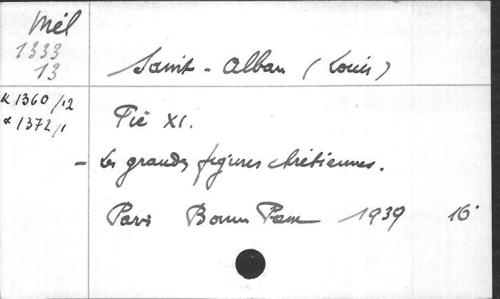 Mél
1333
13
Saint-Alban (Louis)
α 1360/12
α 1372/1
Pie XI.
- Les grandes figures chrétiennes.
Paris Bonne Presse 1939 16°